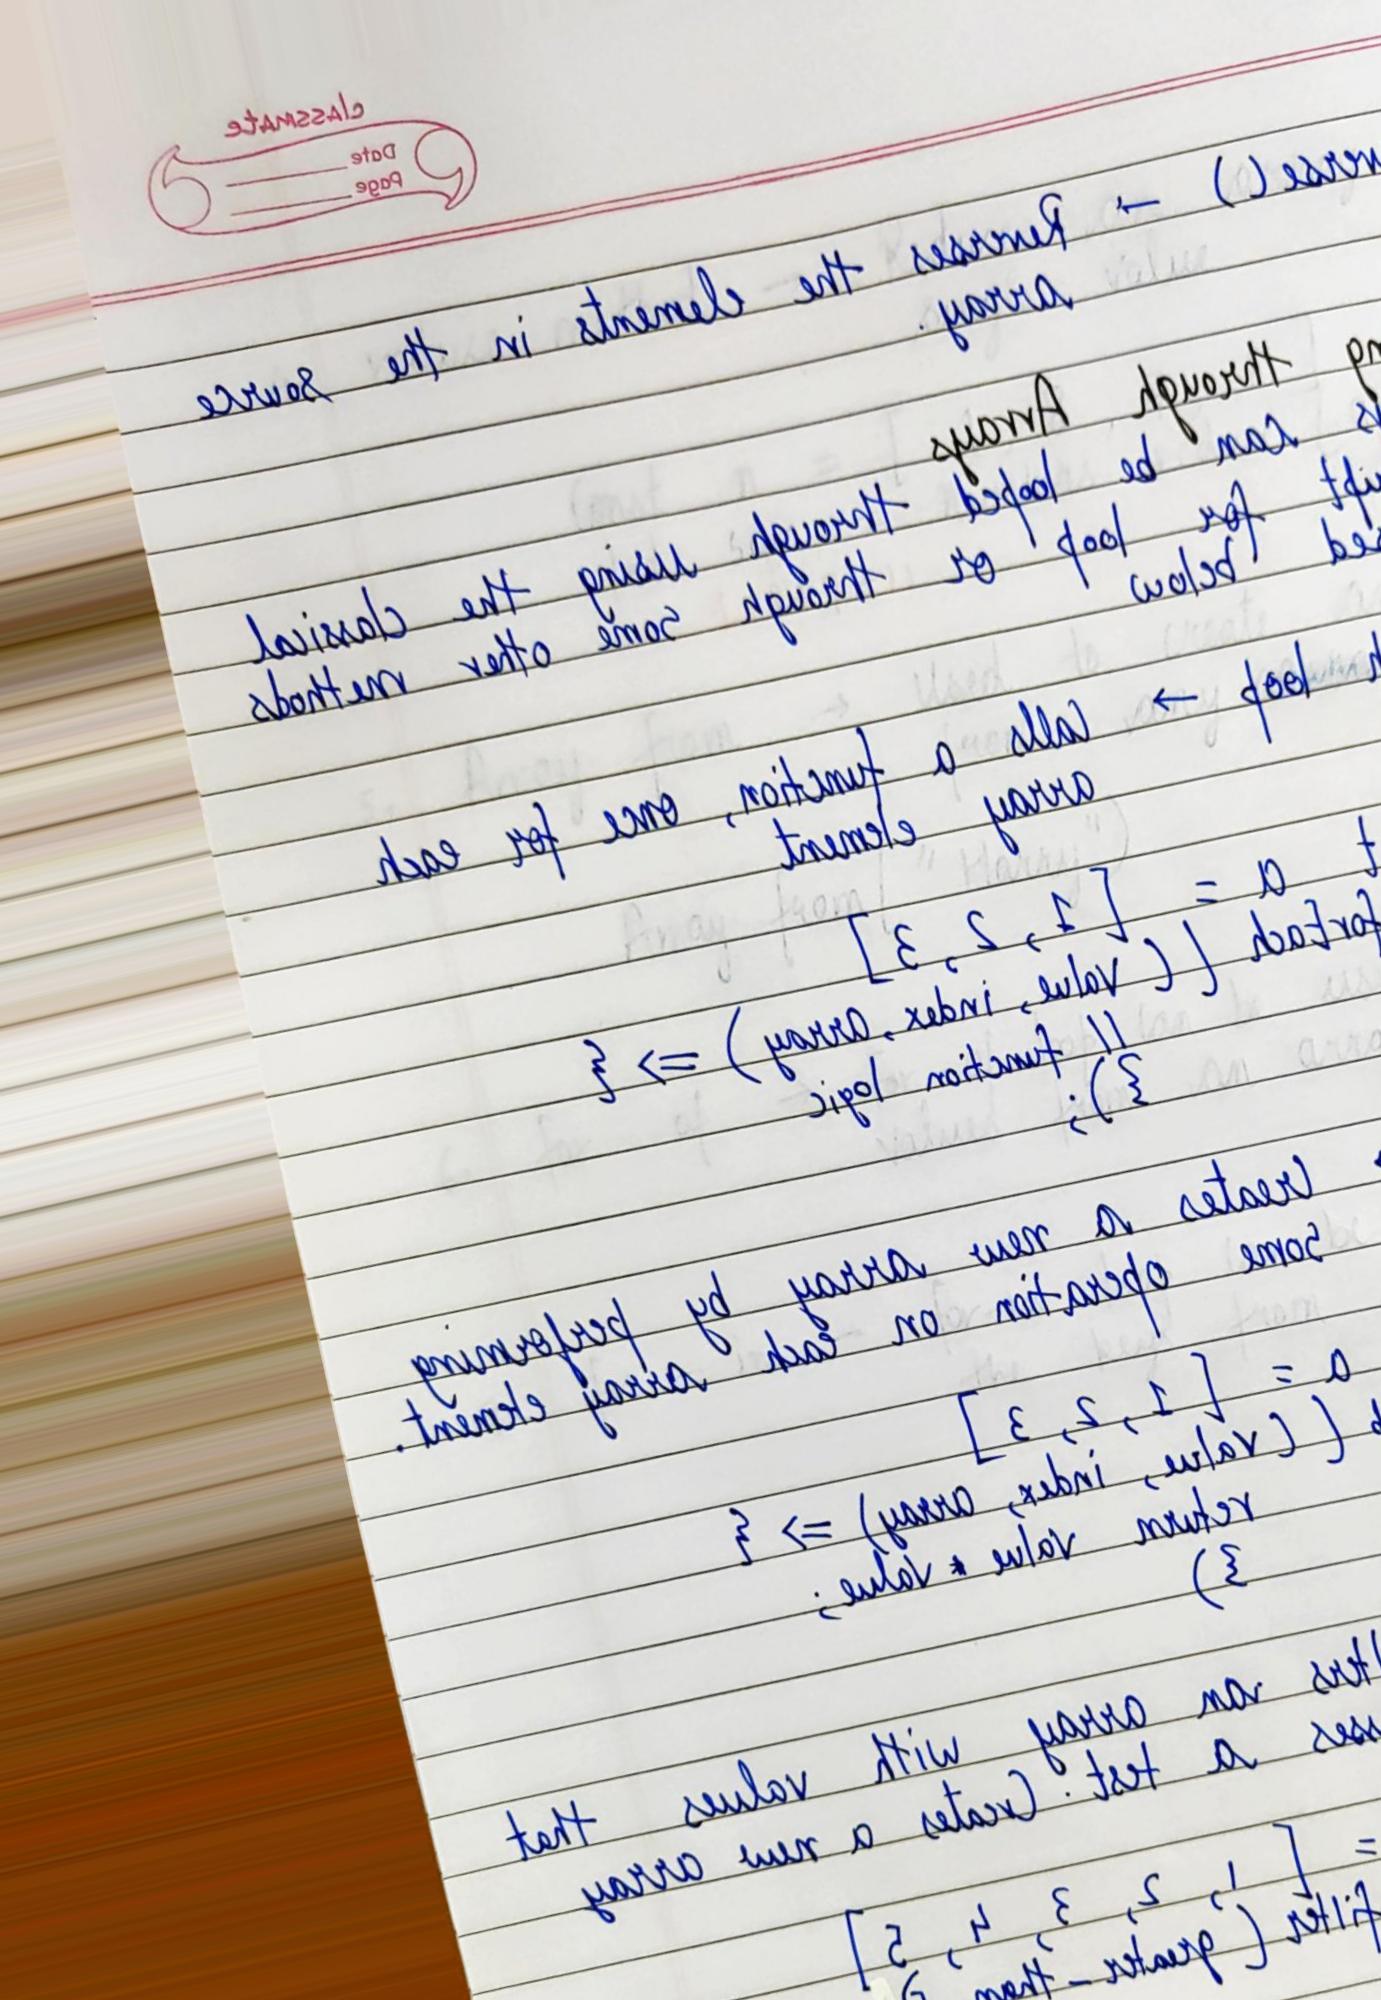 classmate
Date
Page
verse() → Reverses the elements in the source
array.
ng through Arrays
s can be looped through using the classical
ipt for loop or through some other methods
sed below
h loop → Calls a function, once for each
array element
t a = [1, 2, 3]
forEach ((value, index, array) => {
// function logic
});
Creates a new array by performing
some operation on each array element.
a = [1, 2, 3]
((value, index, array) => {
return value * value;
})
lters an array with values that
sses a test. Creates a new array
= [1, 2, 3, 4, 5]
filter (greater-than